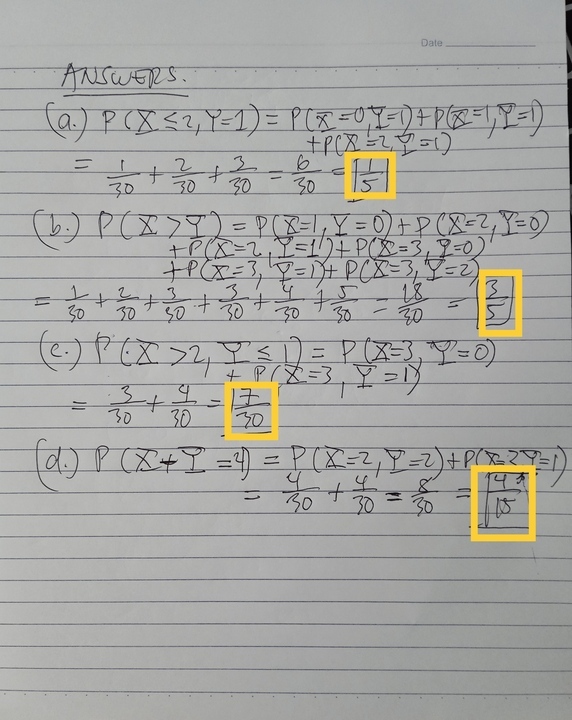 Date
ANSWERS.
(a.) P(X ≤ 2, Y=1) = P(X=0,Y=1)+P(X=1,Y=1)
+P(X=2,Y=1)
= 1/30 + 2/30 + 3/30 = 6/30 = 1/5
(b.) P(X > Y) = P(X=1, Y=0)+P(X=2, Y=0)
+P(X=2, Y=1)+P(X=3, Y=0)
+P(X=3, Y=1)+P(X=3, Y=2)
= 1/30 + 2/30 + 3/30 + 3/30 + 4/30 + 5/30 = 18/30 = 3/5
(c.) P(X >2, Y ≤ 1) = P(X=3, Y=0)
+ P(X=3, Y=1)
= 3/30 + 4/30 = 7/30
(d.) P(X+Y=4) = P(X=2,Y=2)+P(X=3,Y=1)
= 4/30 + 4/30 = 8/30 = 4/15